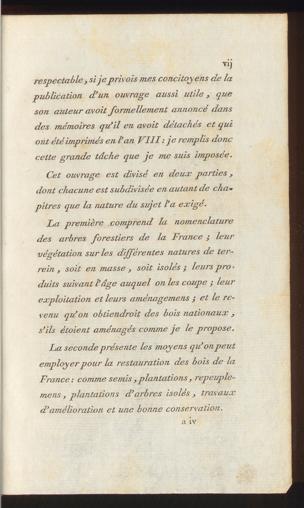 vij
respectable, si je privois mes concitoyens de la
publication d'un ouvrage aussi utile, que
son auteur avoit formellement annoncé dans
des mémoires qu'il en avoit détachés et qui
ont été imprimés en l'an VIII : je remplis donc
cette grande tâche que je me suis imposée.
Cet ouvrage est divisé en deux parties,
dont chacune est subdivisée en autant de cha-
pitres que la nature du sujet l'a exigé.
La première comprend la nomenclature
des arbres forestiers de la France ; leur
végétation sur les différentes natures de ter-
rein, soit en masse, soit isolés ; leurs pro-
duits suivant l'âge auquel on les coupe ; leur
exploitation et leurs aménagemens ; et le re-
venu qu'on obtiendroit des bois nationaux,
s'ils étoient aménagés comme je le propose.
La seconde présente les moyens qu'on peut
employer pour la restauration des bois de la
France : comme semis, plantations, repeuple-
mens, plantations d'arbres isolés, travaux
d'amélioration et une bonne conservation.
a iv